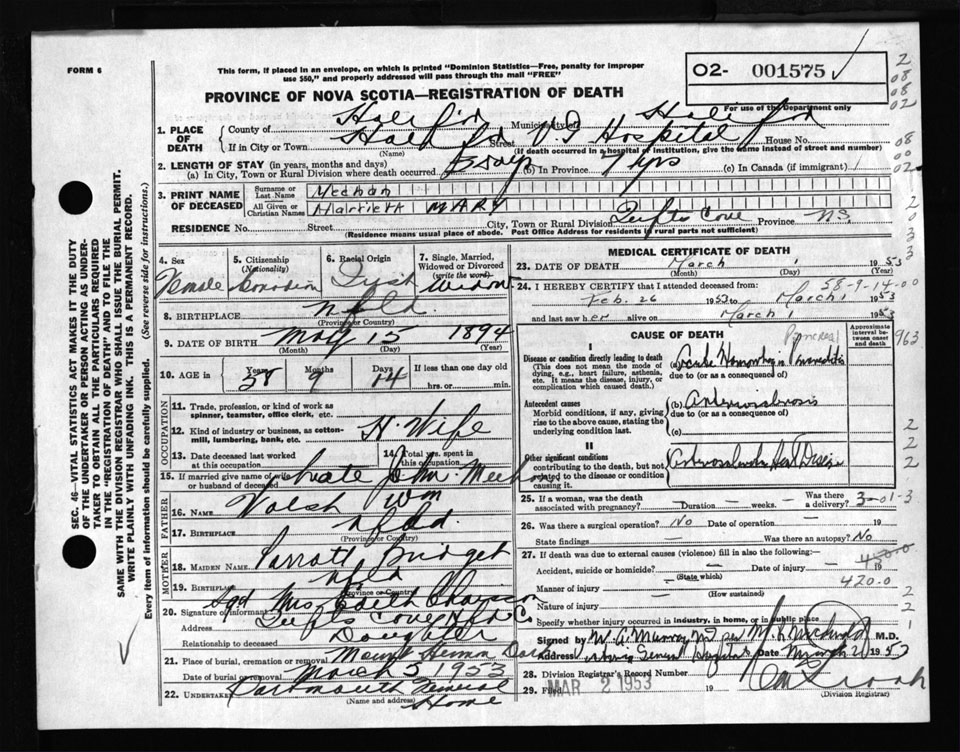 FORM 6
This form, if placed in an envelope, on which is printed "Dominion Statistics—Free, penalty for improper
use $50," and properly addressed will pass through the mail "FREE"
O2- 001575
For use of the Department only
PROVINCE OF NOVA SCOTIA—REGISTRATION OF DEATH
2
08
08
02
08
00
02
1. PLACE OF DEATH
County of Halifax Municipality of Halifax
If in City or Town Halifax Street V.G. Hospital House No.
(Name) (If death occurred in a hospital or institution, give the name instead of street and number)
2. LENGTH OF STAY (in years, months and days)
(a) In City, Town or Rural Division where death occurred 5 days (b) In Province 7 yrs (c) In Canada (if immigrant)
3. PRINT NAME OF DECEASED
Surname or Last Name Meehan
All Given or Christian Names Harriett MARY
RESIDENCE No. Street City, Town or Rural Division Tufts Cove Province N.S.
(Residence means usual place of abode. Post Office Address for residents in rural parts not sufficient)
SEC. 46—VITAL STATISTICS ACT MAKES IT THE DUTY
OF THE UNDERTAKER OR PERSON ACTING AS UNDER-
TAKER TO OBTAIN ALL THE PARTICULARS REQUIRED
IN THE "REGISTRATION OF DEATH" AND TO FILE THE
SAME WITH THE DIVISION REGISTRAR WHO SHALL ISSUE THE BURIAL PERMIT.
WRITE PLAINLY WITH UNFADING INK. THIS IS A PERMANENT RECORD.
Every item of information should be carefully supplied. (See reverse side for instructions.)
4. Sex Female
5. Citizenship (Nationality) Canadian
6. Racial Origin Irish
7. Single, Married, Widowed or Divorced (write the word) Widow
8. BIRTHPLACE Nfld.
(Province or Country)
9. DATE OF BIRTH May 15 1894
(Month) (Day) (Year)
10. AGE in Years 58 Months 9 Days 14 If less than one day
hrs. or min.
OCCUPATION
11. Trade, profession, or kind of work as
spinner, teamster, office clerk, etc.
12. Kind of industry or business, as cotton-
mill, lumbering, bank, etc. H. Wife
13. Date deceased last worked
at this occupation
14. Total yrs. spent in
this occupation
15. If married give name of wife
or husband of deceased Late John Meehan
FATHER
16. NAME Walsh Wm
17. BIRTHPLACE Nfld.
(Province or Country)
MOTHER
18. MAIDEN NAME Parrott Bridget
19. BIRTHPLACE Nfld
(Province or Country)
20. Signature of informant Sgd Mrs. Edith Chaisson
Address Tufts Cove
Relationship to deceased Daughter
21. Place of burial, cremation or removal Mount Hermon Dart
Date of burial or removal March 3, 1953
22. Undertaker Dartmouth Funeral
Home
(Name and address)
MEDICAL CERTIFICATE OF DEATH
23. DATE OF DEATH March 1 1953
(Month) (Day) (Year)
58-9-14-00
24. I HEREBY CERTIFY that I attended deceased from:
Feb. 26 1953 to March 1 1953
and last saw her alive on March 1 1953
CAUSE OF DEATH
Approximate interval between onset and death
963
Pancreas
I
Disease or condition directly leading to death
(This does not mean the mode of dying, e.g., heart failure, asthenia, etc. It means the disease, injury, or complication which caused death.)
(a) Acute Hemorrhagic Pancreatitis
due to (or as a consequence of)
Antecedent causes
Morbid conditions, if any, giving rise to the above cause, stating the underlying condition last.
(b) Arteriosclerosis
due to (or as a consequence of)
(c)
II
Other significant conditions
contributing to the death, but not related to the disease or condition causing it.
Arteriosclerotic Heart Disease
25. If a woman, was the death
associated with pregnancy? Duration weeks. Was there
a delivery?
3-01-3
26. Was there a surgical operation? No Date of operation 19
State findings Was there an autopsy? No
27. If death was due to external causes (violence) fill in also the following:—
Accident, suicide or homicide? Date of injury 19
(State which)
Manner of injury 420.0
(How sustained)
Nature of injury
Specify whether injury occurred in industry, in home, or in public place
Signed by W. A. Murray MD per M.D.
Address Victoria General Hospital Date March 2 1953
28. Division Registrar's Record Number
29. Filed MAR 2 1953 19
(Division Registrar)